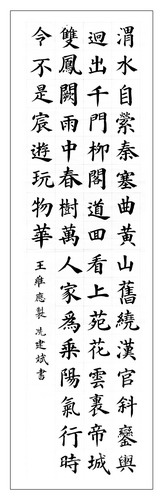 渭水自縈秦塞曲黃山舊繞漢宮斜鑾輿
迴出千門柳閣道回看上苑花雲裏帝城
雙鳳闕雨中春樹萬人家爲乘陽氣行時
令不是宸遊玩物華
王維應製 冼建斌書